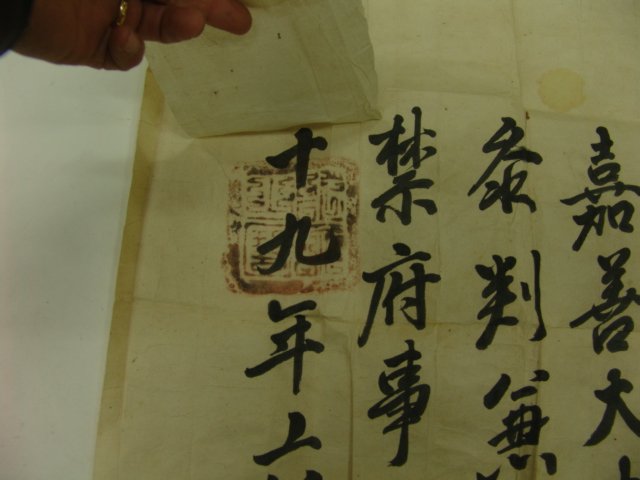 嘉善大
叅判兼
禁府事
十九年